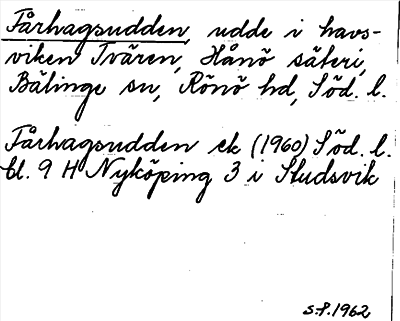 Fårhagsudden, udde i havs-
viken Tvären, Hånö säteri,
Bälinge sn, Rönö hd, Söd. l.
Fårhagsudden ek (1960) Söd. l.
bl. 9 H Nyköping 3 i Studsvik
S.P. 1962